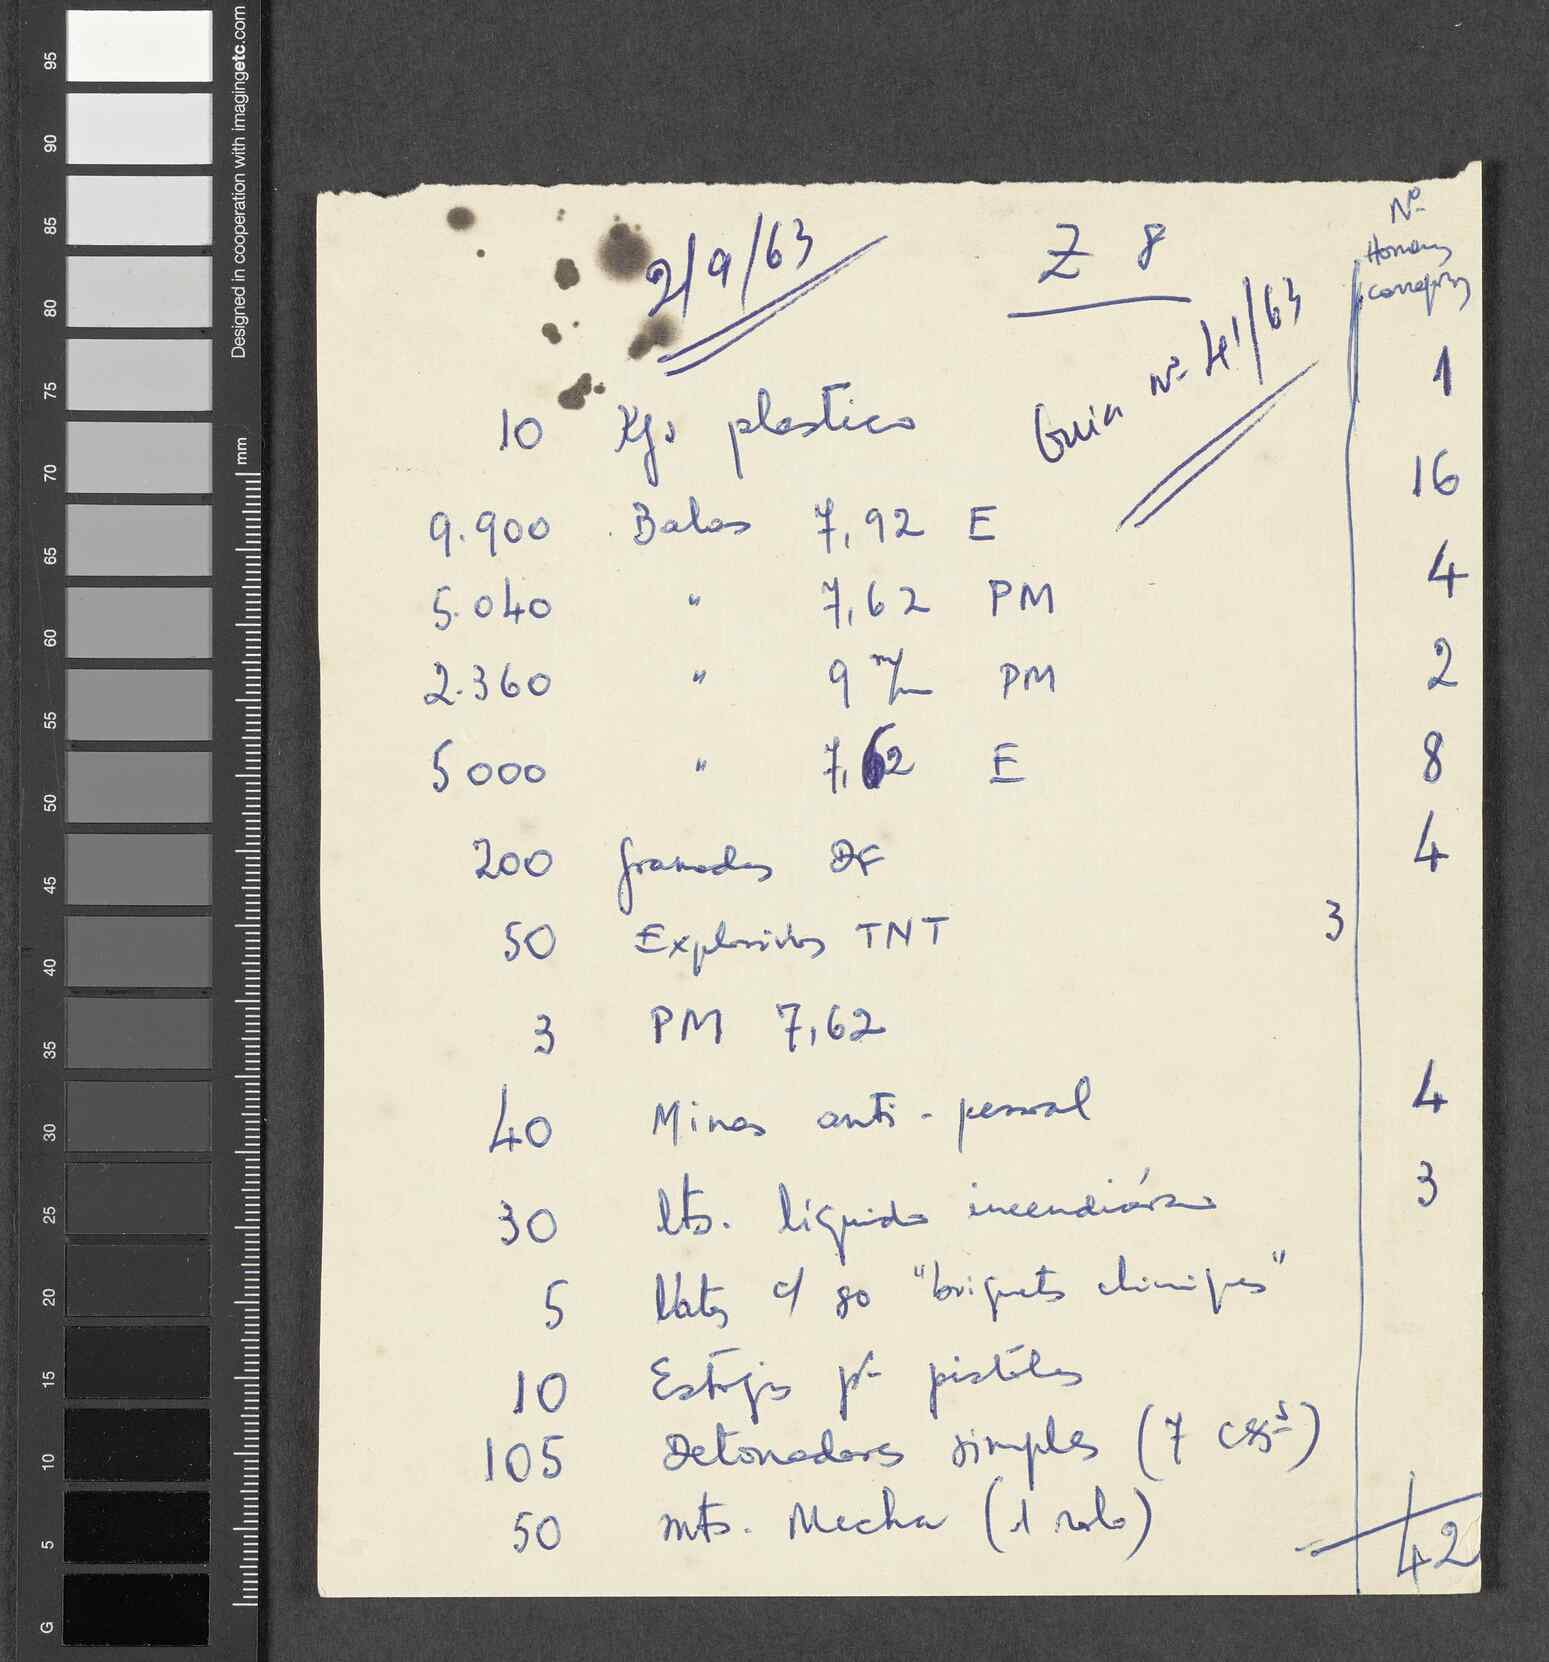 2/9/63
Z 8
Nº
Homens
Guia Nº 41/63
10 Kgs plastico 1
9.900 Balas 7,92 E 16
5.040 " 7,62 PM 4
2.360 " 9 m/m PM 2
5000 " 7,62 E 8
200 granadas DF 4
50 Explosivos TNT 3
3 PM 7,62
40 Minas anti-pessoal 4
30 lts. líquido incendiário 3
5 latas c/ 80 "briquets chimiques"
10 Estojos pª pistólas
105 Detonadores simples (7 cxsˢ)
50 mts. Mecha (1 rolo)
42
95
90
85
80
75
70
65
60
55
50
45
40
35
30
25
20
15
10
5
G
mm
Designed in cooperation with imagingetc.com